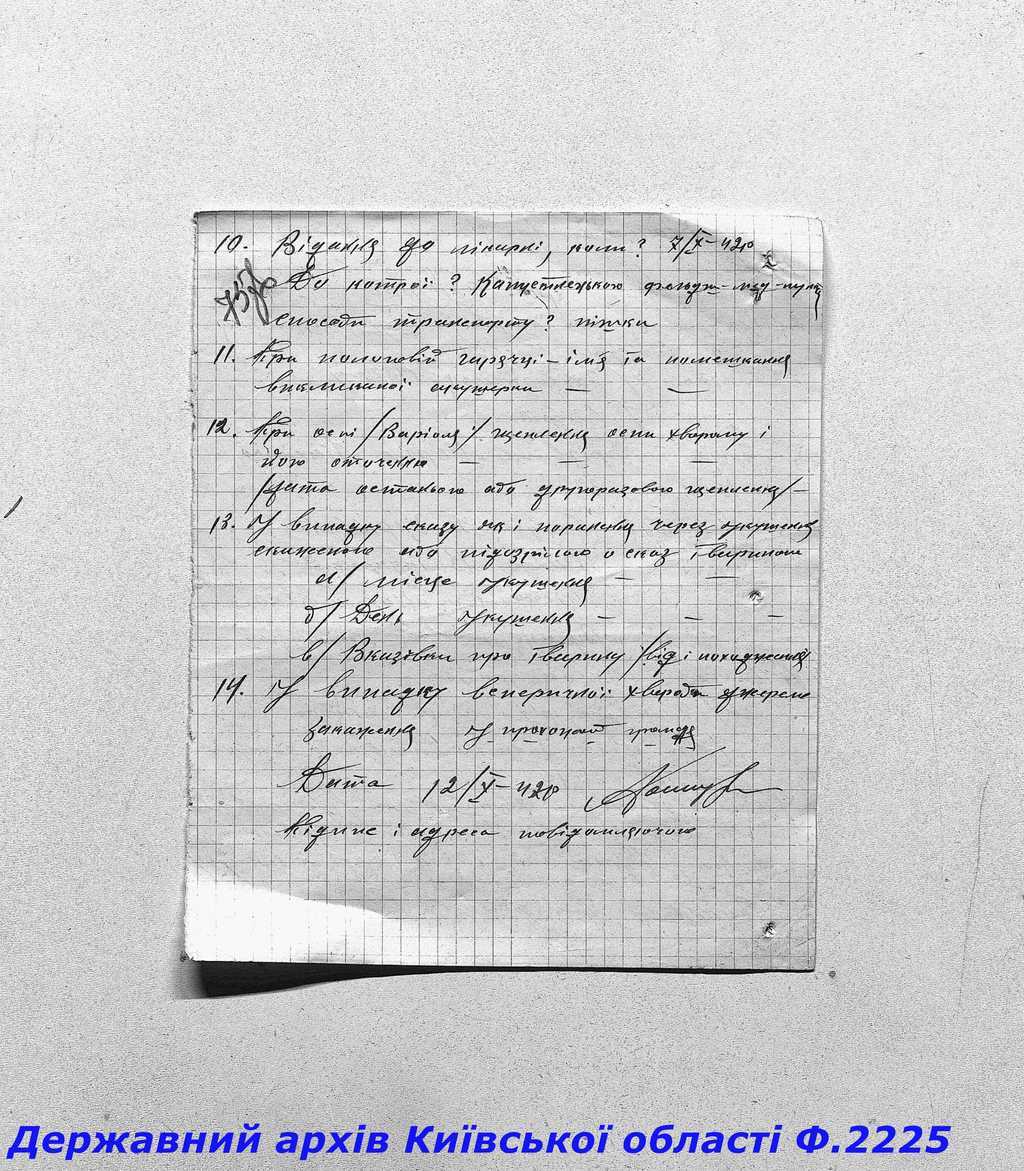 10. Віддання до лікарні, коли? 7/X-42р
До котрої?
способи транспорту? пішки
11. При пологовій гарячці - ім'я та помешкання
викликаної акушерки — —
12. При оспі /Варіоля/ щеплення оспи хворому і
його оточенню — — —
/дата останнього або другоразового щеплення/ —
13. У випадку сказу як і поранення через укушення
скаженою або підозрілою о сказ твариною
а/ місце укушення — —
б/ День укушення — — —
в/ Вказівки про тварину /від і походження/
14. У випадку венеричної хвороби джерело
зараження У
Дата 12/X-42р
Підпис і адреса повідомляючого
Державний архів Київської області Ф.2225